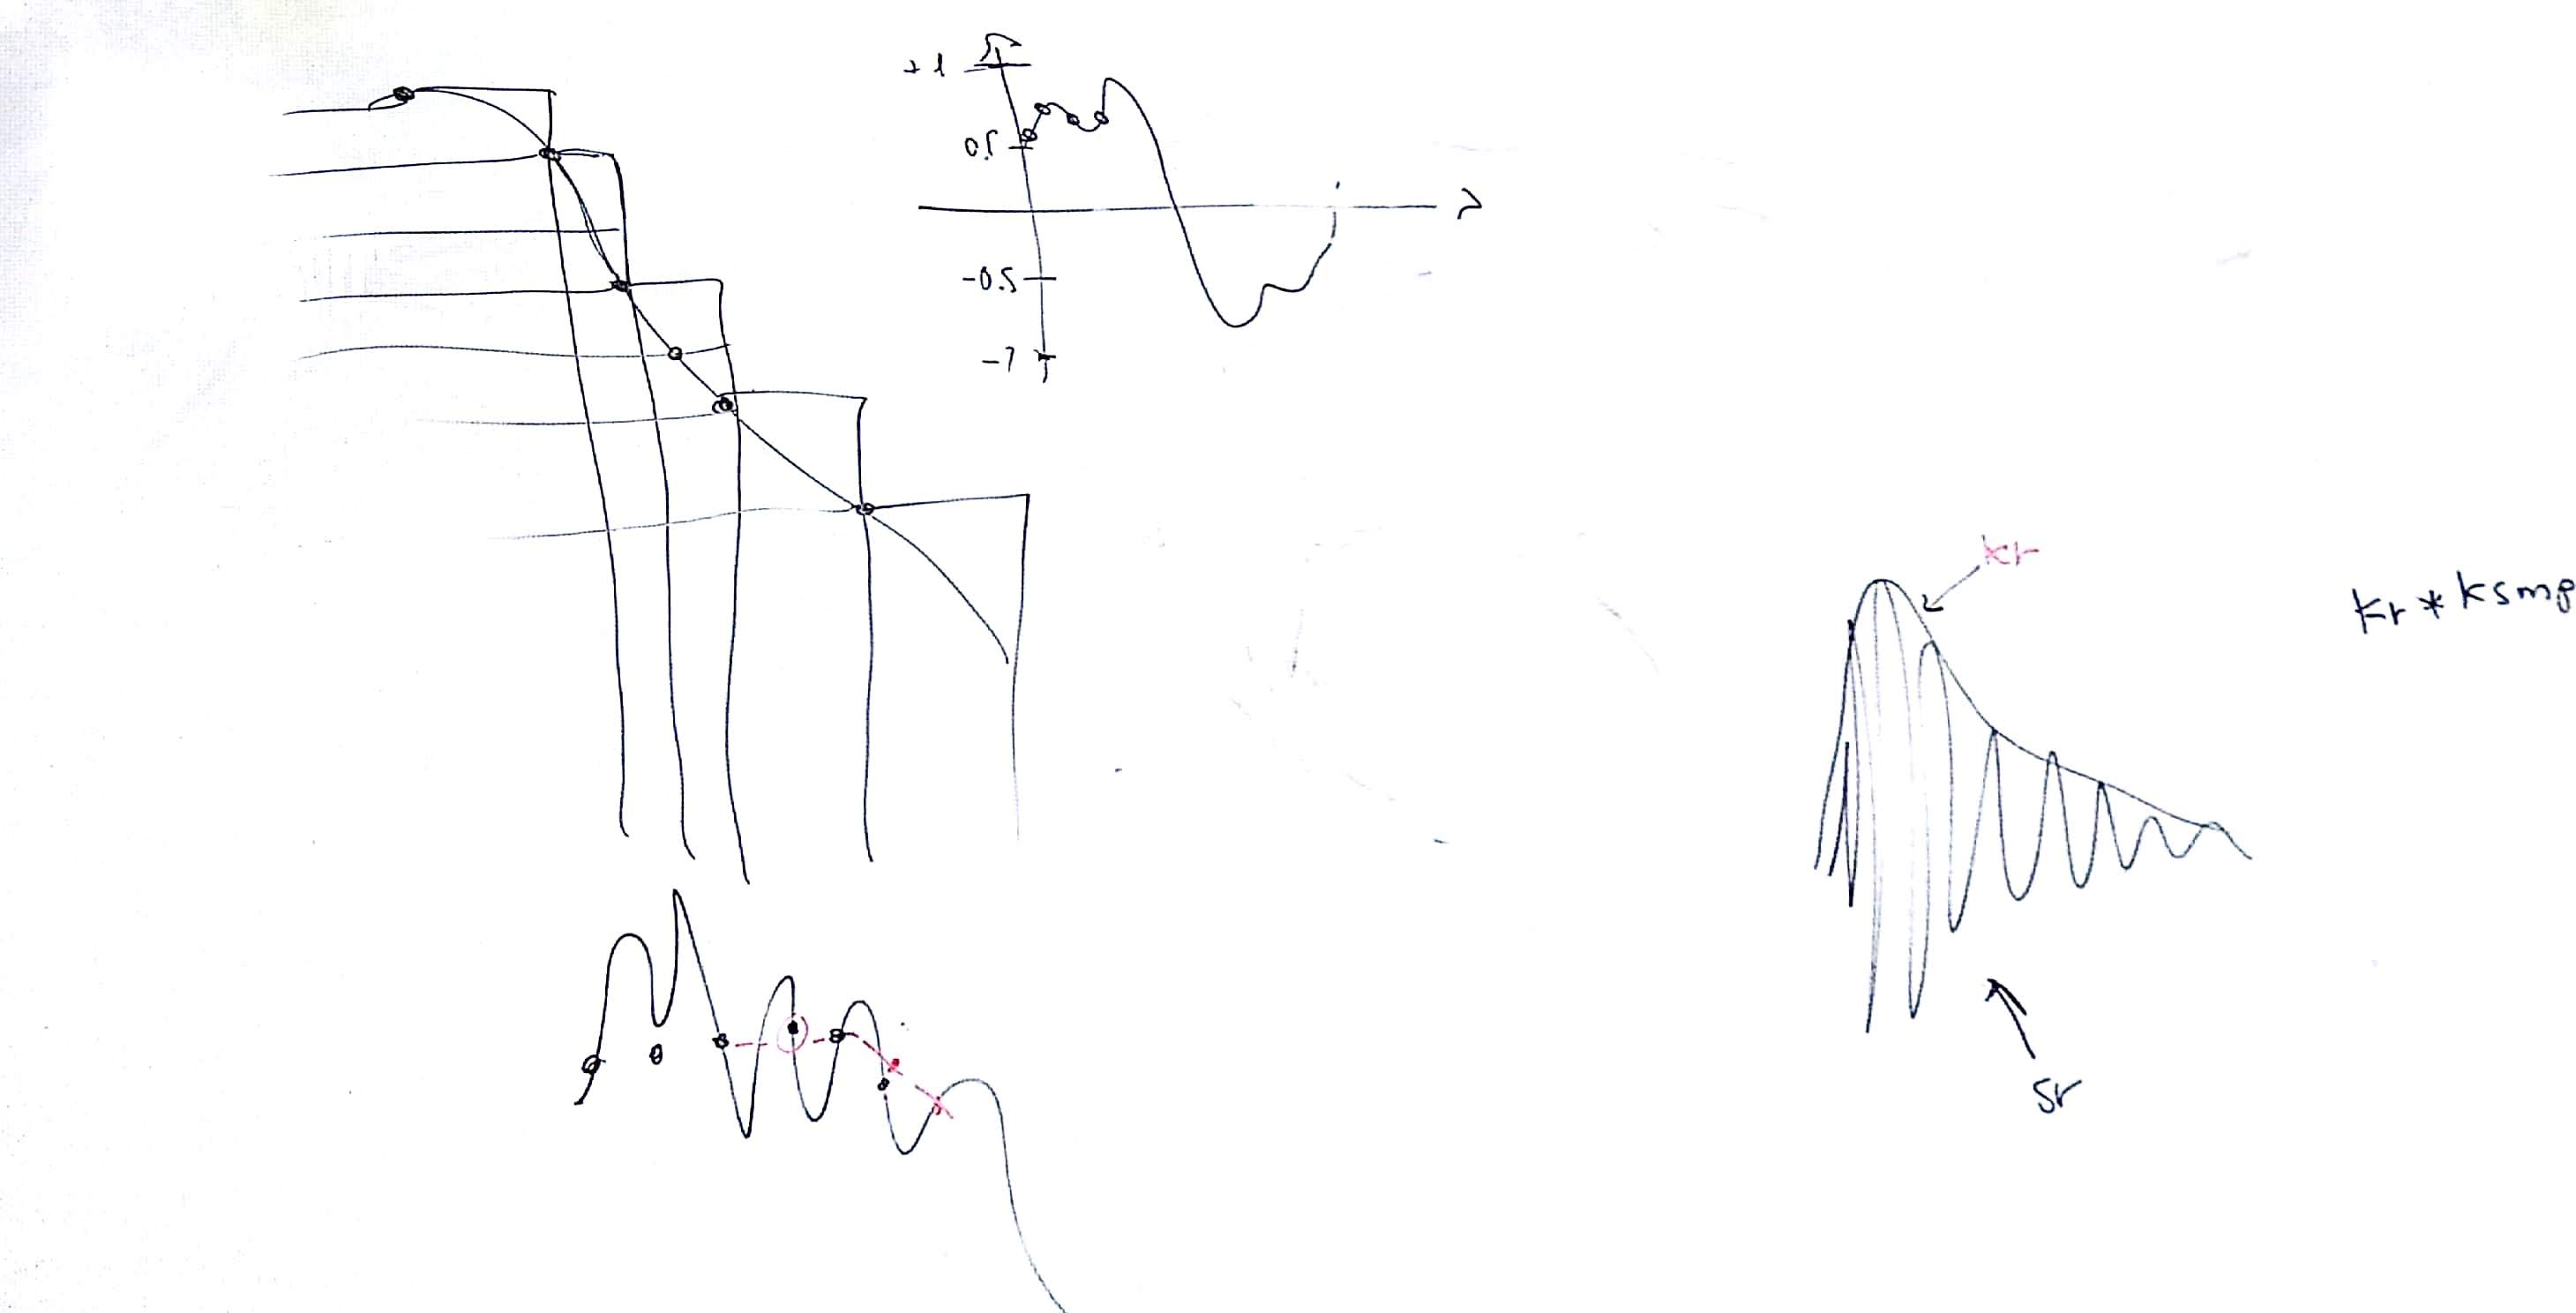 +1
0.5
-0.5
-1
kr
kr * ksmp
sr